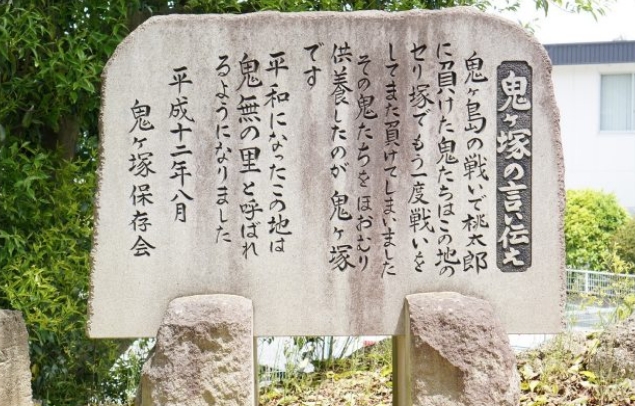 鬼ヶ塚の言い伝え
鬼ヶ島の戦いで桃太郎
に負けた鬼たちはこの地の
セリ塚でもう一度戦いを
してまた負けてしまいました
その鬼たちをほおむり
供養したのが鬼ヶ塚
です
平和になったこの地は
鬼無の里と呼ばれ
るようになりました
平成十二年八月
鬼ヶ塚保存会